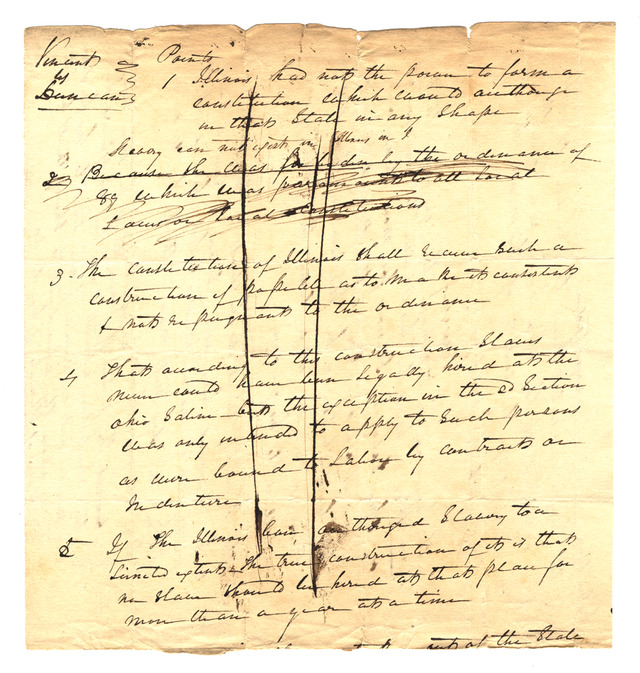 Vincent
vs
Duncan
Points
1 Illinois had not the power to form a
constitution which would authorize
in that State in any shape
Slavery can not exist in
2 Because she was forbidden by the ordinance of
89 which was paramount to all local
Laws or local constitutions
3. The constitution of Illinois shall receive such a
construction if possible as to make it consistent
& not repugnant to the ordinance
4 That according to this construction Slaves
never could have been legally hired at the
ohio Saline but the exception in the 2d Section
was only intended to apply to such persons
as were bound to Labor by contract or
Indenture
5 If the Illinois authorized Slavery to a
limited extent the true construction of it is that
no slave should be hired at that place for
more than a year at a time
of the State